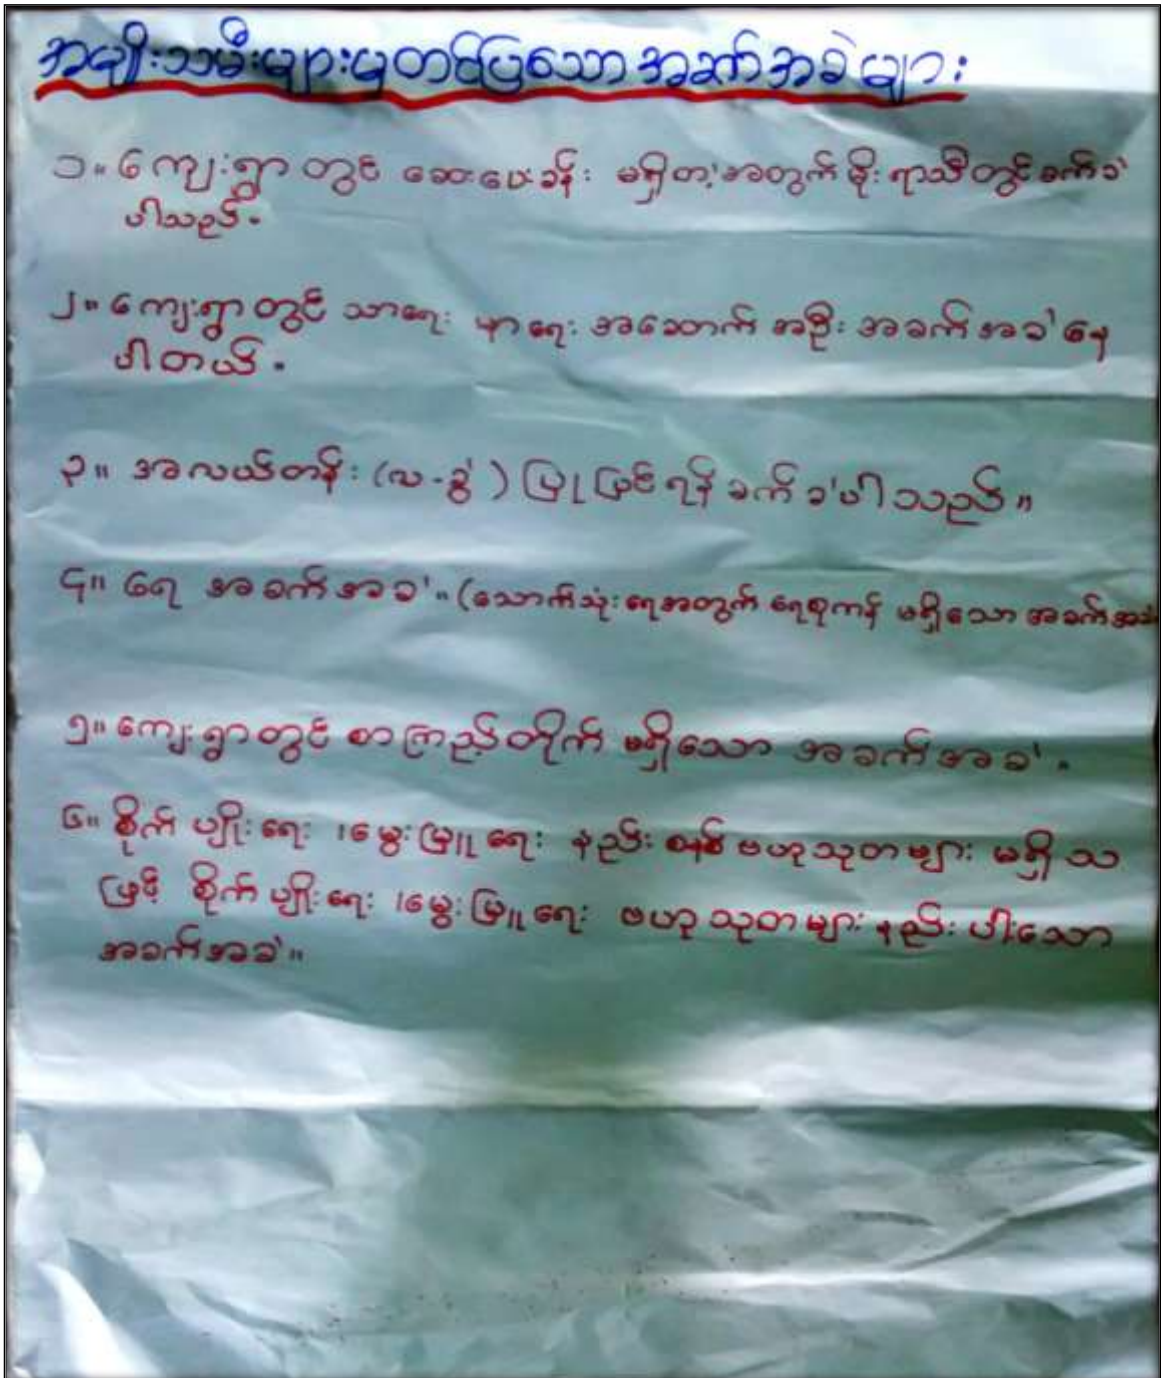 အမျိုးသမီးများမှတင်ပြသောအခက်အခဲများ
၁။ ကျေးရွာတွင် ဆေးပေးခန်း မရှိတဲ့အတွက်မိုးရာသီတွင်ခက်ခဲ
ပါသည်။
၂။ ကျေးရွာတွင် သာရေး နာရေး အဆောက်အဦး အခက်အခဲနေ
ပါတယ်။
၃။ အလယ်တန်း (လ-ခွဲ) ပြုပြင်ရန်ခက်ခဲပါသည်။
၄။ ရေ အခက်အခဲ။ (သောက်သုံးရေအတွက် ရေစုကန် မရှိသော အခက်အခဲ
၅။ ကျေးရွာတွင် စာကြည့်တိုက် မရှိသော အခက်အခဲ။
၆။ စိုက်ပျိုးရေး ၊မွေးမြူရေး နည်းစနစ် ဗဟုသုတများ မရှိသ
ဖြင့် စိုက်ပျိုးရေး ၊မွေးမြူရေး ဗဟုသုတများ နည်းပါးသော
အခက်အခဲ။